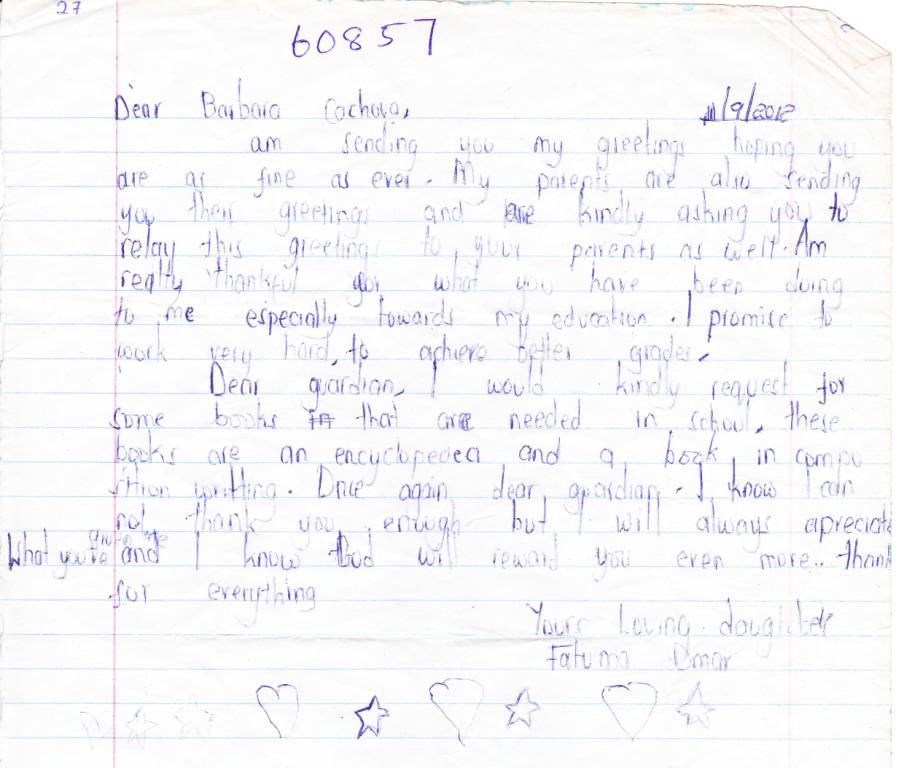 27
60857
Dear Barbara Cachova, 11/9/2012
am sending you my greetings hoping you
are as fine as ever. My parents are also sending
you their greetings and are kindly asking you to
relay this greetings to your parents as well. Am
really thankful for what you have been doing
to me especially towards my education. I promise to
work very hard, to achieve better grades,
Dear guardian, I would kindly request for
some books that are needed in school, these
books are an encyclopedea and a book in compo
sition writting. Once again dear guardian - I know I can
not thank you enough but I will always apreciate
What you're and I know God will reward you even more.. thank
for everything
Yours Loving daughter
Fatuma Omar